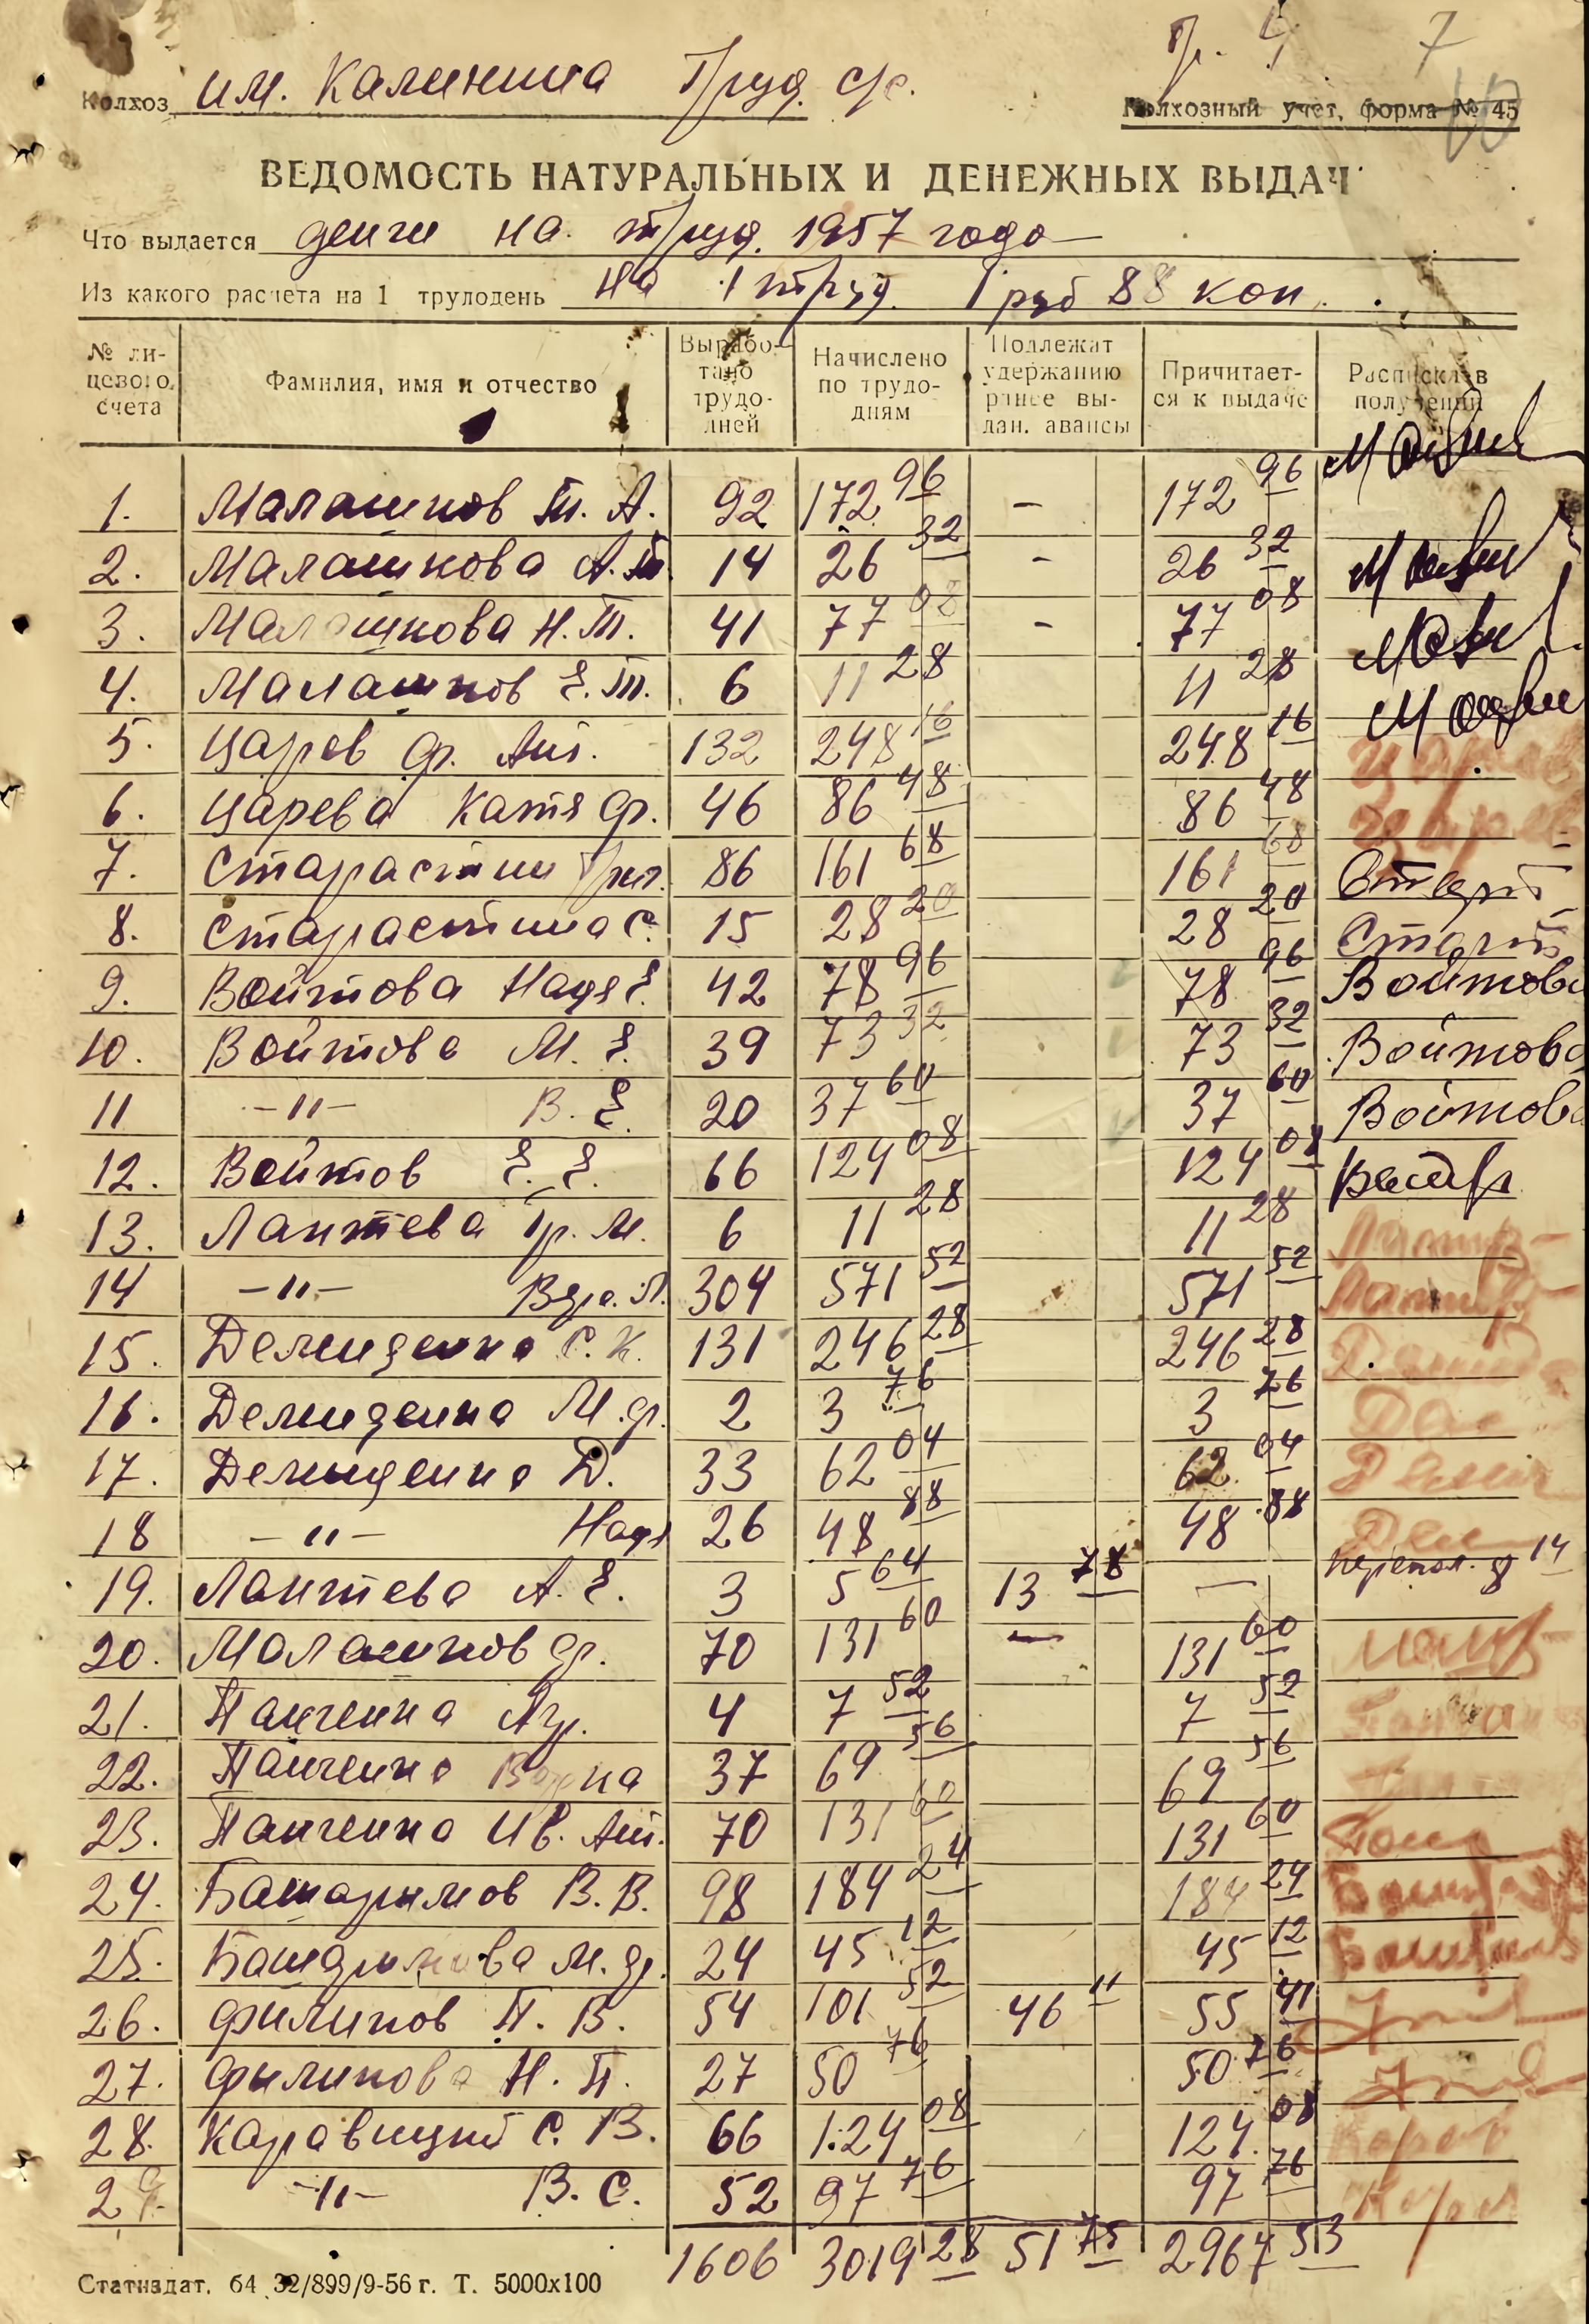 7
Колхоз им. Калинина Труд. с/с.
Колхозный учет, форма № 45
ВЕДОМОСТЬ НАТУРАЛЬНЫХ И ДЕНЕЖНЫХ ВЫДАЧ
Что выдается денги на труд. 1957 года
Из какого расчета на 1 трудодень на 1 труд. 1 руб 88 коп.
№ лицевого счета Фамилия, имя и отчество Выработано трудодней Начислено по трудодням Подлежат удержанию ранее выдан. авансы Причитается к выдаче Расписка в получении
1. Малашков Т. А. 92 172 96 - 172 96
2. Малашкова А. Т. 14 26 32 - 26 32
3. Малашкова Н. Т. 41 77 08 - 77 08
4. Малашков Е. Т. 6 11 28 11 28
5. Царев Ф. Ант. 132 248 16 248 16
6. Царева Катя Ф. 46 86 48 86 48
7. Старастин Григ. 86 161 68 161 68
8. Старастина С. 15 28 20 28 20
9. Войтова Надя Е. 42 78 96 78 96 Войтова
10. Войтова М. Е. 39 73 32 73 32 Войтова
11 -"- В. Е. 20 37 60 37 60 Войтова
12. Войтов Е. Е. 66 124 08 124 08
13. Лаптева Пр. М. 6 11 28 11 28
14 -"- 304 571 52 571 52
15. Демиденко С. К. 131 246 28 246 28
16. Демиденко М. Ф. 2 3 76 3 76
17. Демиденко Д. 33 62 04 62 04
18 -"- Надя 26 48 88 48 88
19. Лаптева А. Е. 3 5 64 13 78 — перепол. 8 14
20. Малашков Ф. 70 131 60 — 131 60
21. Панченко 4 7 52 7 52
22. Панченко 37 69 56 69 56
23. Панченко Ив. Ант. 70 131 60 131 60
24. Башаримов В. В. 98 184 24 184 24
25. Башаримова М. Ф. 24 45 12 45 12
26. Филипов П. В. 54 101 52 46 11 55 41
27. Филипова Н. П. 27 50 76 50 76
28. Каравицкий С. В. 66 124 08 124 08
29. -"- В. С. 52 97 76 97 76
1606 3019 28 51 75 2967 53
Статиздат. 64 32/899/9-56 г. Т. 5000х100